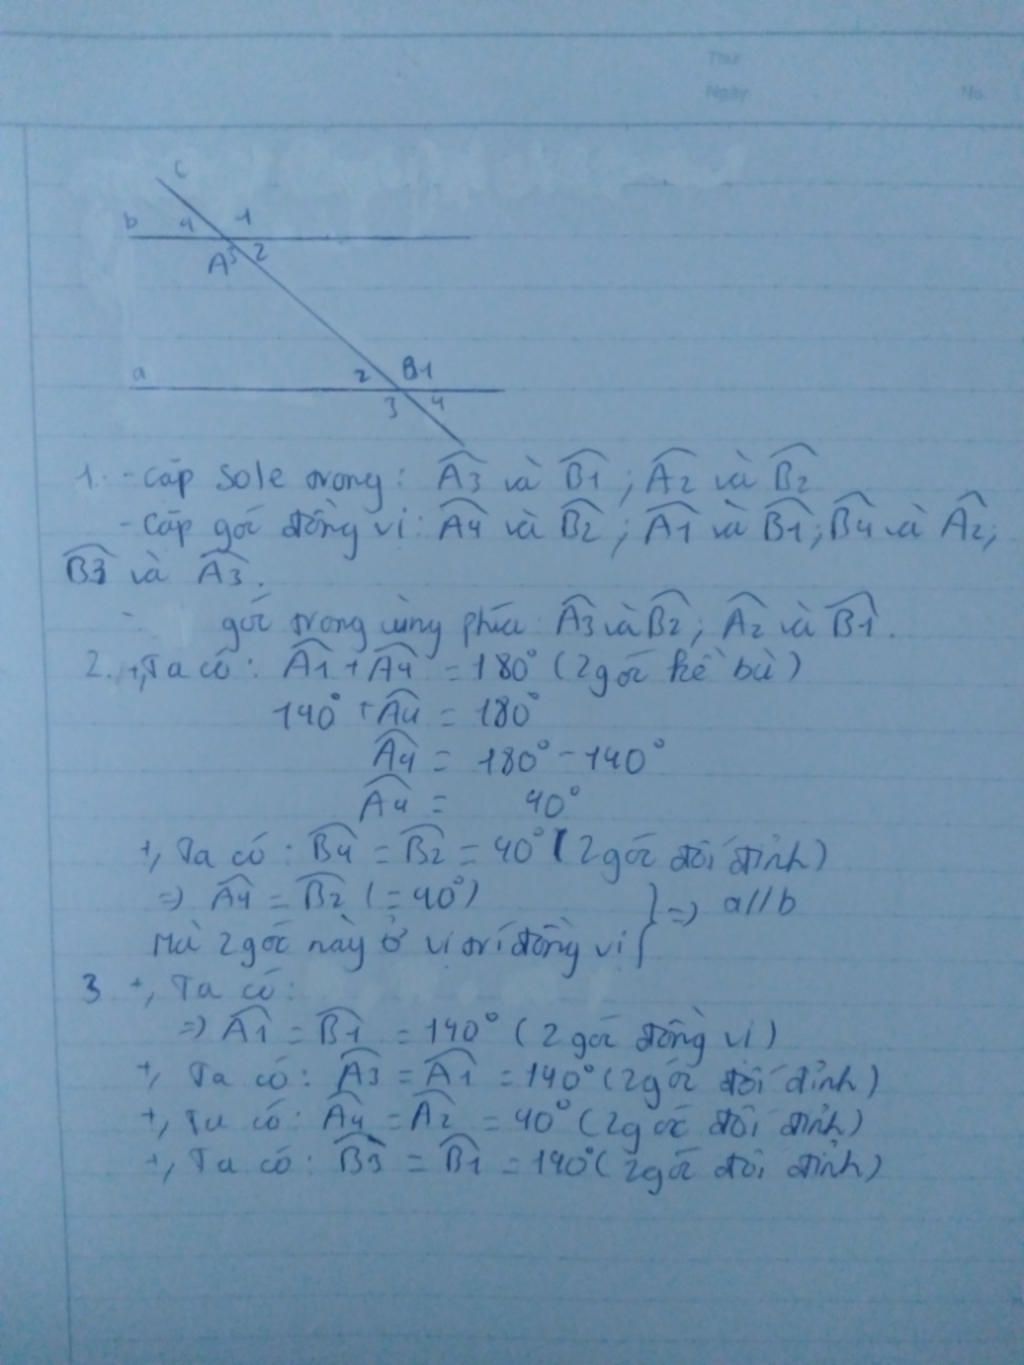 Thứ
Ngày No.
c
b 4 1
A 3 2
a 2 B 1
3 4
1. - Cặp sole trong: A3 và B1 ; A2 và B2
- Cặp góc đồng vị: A4 và B2 ; A1 và B1 ; B4 và A2 ;
B3 và A3.
- góc trong cùng phía: A3 và B2 ; A2 và B1.
2. +, Ta có: A1 + A4 = 180° (2 góc kề bù)
140° + A4 = 180°
A4 = 180° - 140°
A4 = 40°
+, Ta có: B4 = B2 = 40° (2 góc đối đỉnh)
=> A4 = B2 (= 40°) } => a // b
Mà 2 góc này ở vị trí đồng vị
3 +, Ta có:
=> A1 = B1 = 140° (2 góc đồng vị)
+, Ta có: A3 = A1 = 140° (2 góc đối đỉnh)
+, Ta có: A4 = A2 = 40° (2 góc đối đỉnh)
+, Ta có: B3 = B1 = 140° (2 góc đối đỉnh)